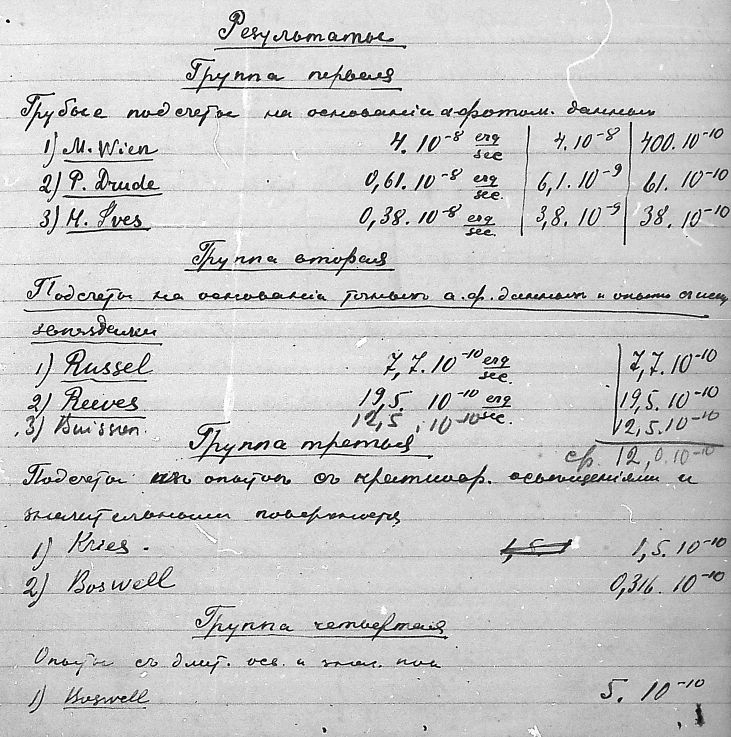 Результаты
Группа первая
Грубые подсчеты на основаніи фотом. данных
1) M. Wien 4. 10⁻⁸ erg/sec 4. 10⁻⁸ 400. 10⁻¹⁰
2) P. Drude 0,61. 10⁻⁸ erg/sec. 6,1. 10⁻⁹ 61. 10⁻¹⁰
3) H. Ives 0,38. 10⁻⁸ erg/sec. 3,8. 10⁻⁹ 38. 10⁻¹⁰
Группа вторая
Подсчеты на основаніи точных а. ф. данных и опыты с
1) Russel 7,7. 10⁻¹⁰ erg/sec. 7,7. 10⁻¹⁰
2) Reeves 19,5. 10⁻¹⁰ erg/sec. 19,5. 10⁻¹⁰
3) Buisson. 12,5. 10⁻¹⁰ 12,5. 10⁻¹⁰
Группа третья ср. 12,0. 10⁻¹⁰
Подсчеты из опытов съ кратковр. освещеніями и
значительными поверхност
1) Kries. 1,5. 1,5. 10⁻¹⁰
2) Boswell 0,316. 10⁻¹⁰
Группа четвертая
Опыты съ длит. осв. и знач. пов
1) Boswell 5. 10⁻¹⁰